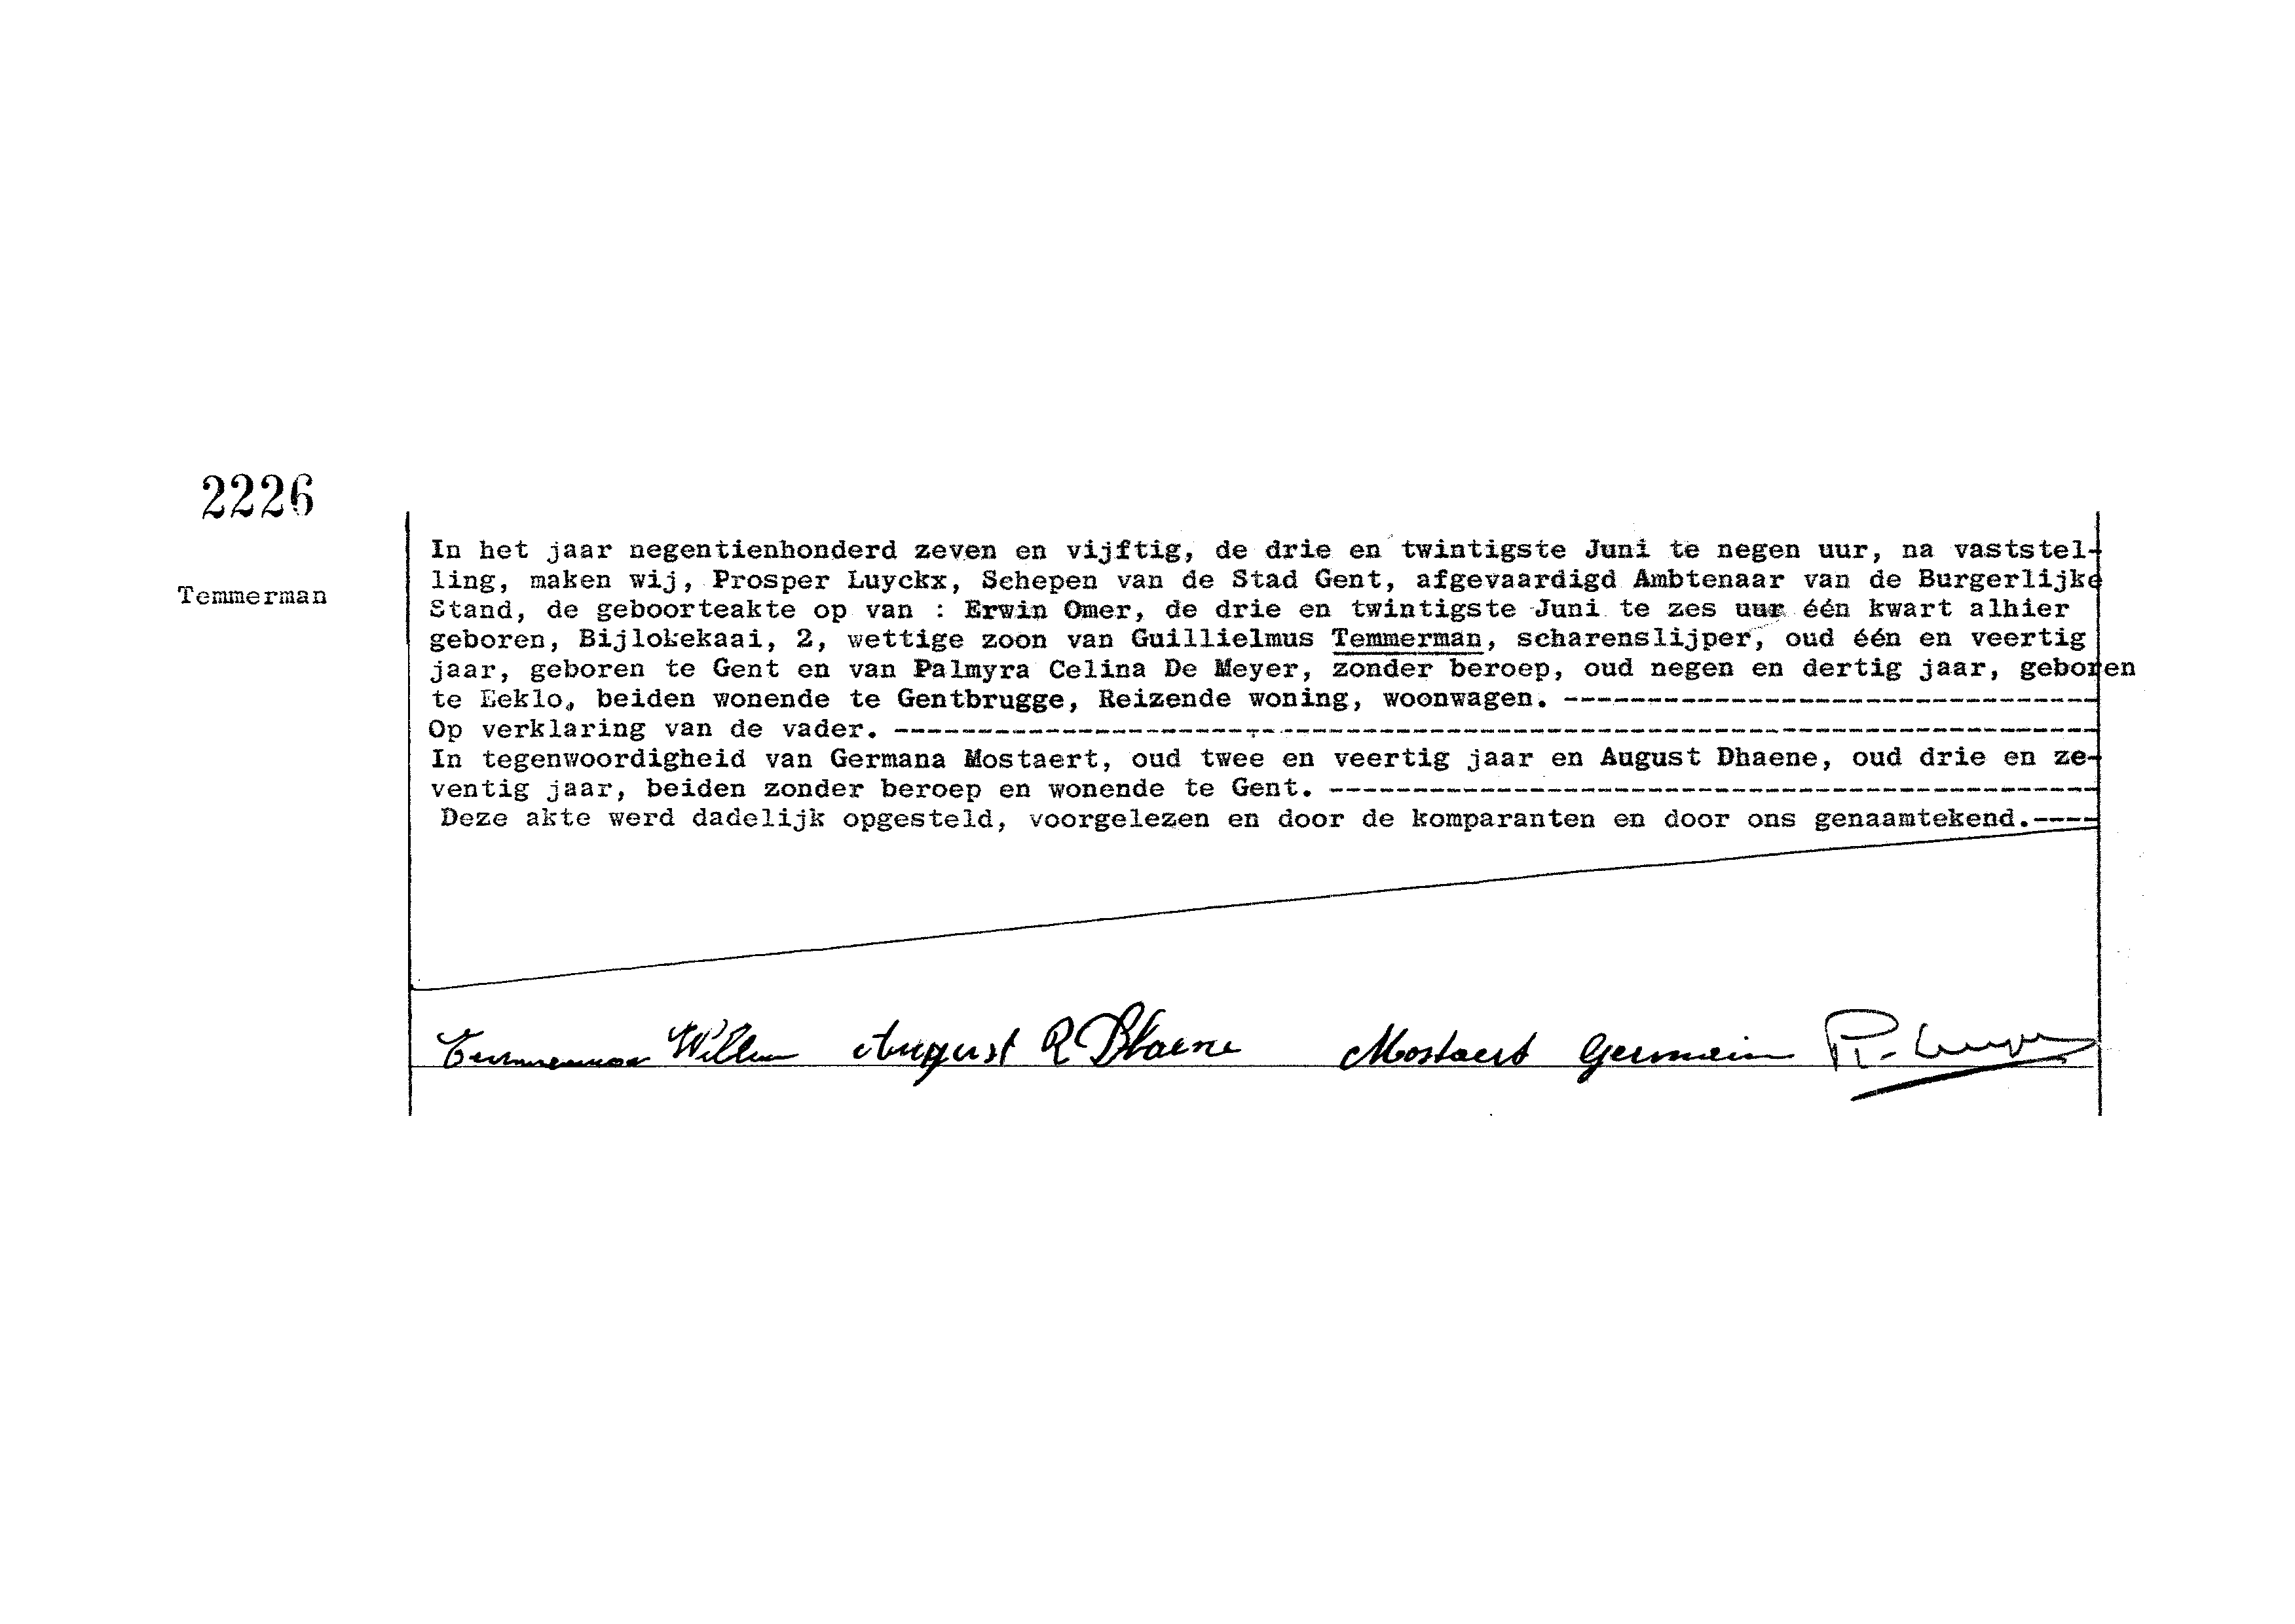 2226
Temmerman
In het jaar negentienhonderd zeven en vijftig, de drie en twintigste Juni te negen uur, na vaststel-
ling, maken wij, Prosper Luyckx, Schepen van de Stad Gent, afgevaardigd Ambtenaar van de Burgerlijke
Stand, de geboorteakte op van : Erwin Omer, de drie en twintigste Juni te zes uur één kwart alhier
geboren, Bijlokekaai, 2, wettige zoon van Guillielmus Temmerman, scharenslijper, oud één en veertig
jaar, geboren te Gent en van Palmyra Celina De Meyer, zonder beroep, oud negen en dertig jaar, geboren
te Eeklo, beiden wonende te Gentbrugge, Reizende woning, woonwagen. --------------------------------
Op verklaring van de vader. ------------------------------------------------------------------------
In tegenwoordigheid van Germana Mostaert, oud twee en veertig jaar en August Dhaene, oud drie en ze-
ventig jaar, beiden zonder beroep en wonende te Gent. ----------------------------------------------
Deze akte werd dadelijk opgesteld, voorgelezen en door de komparanten en door ons genaamtekend.----
Temmerman Willem August R Dhaene Mostaert Germain